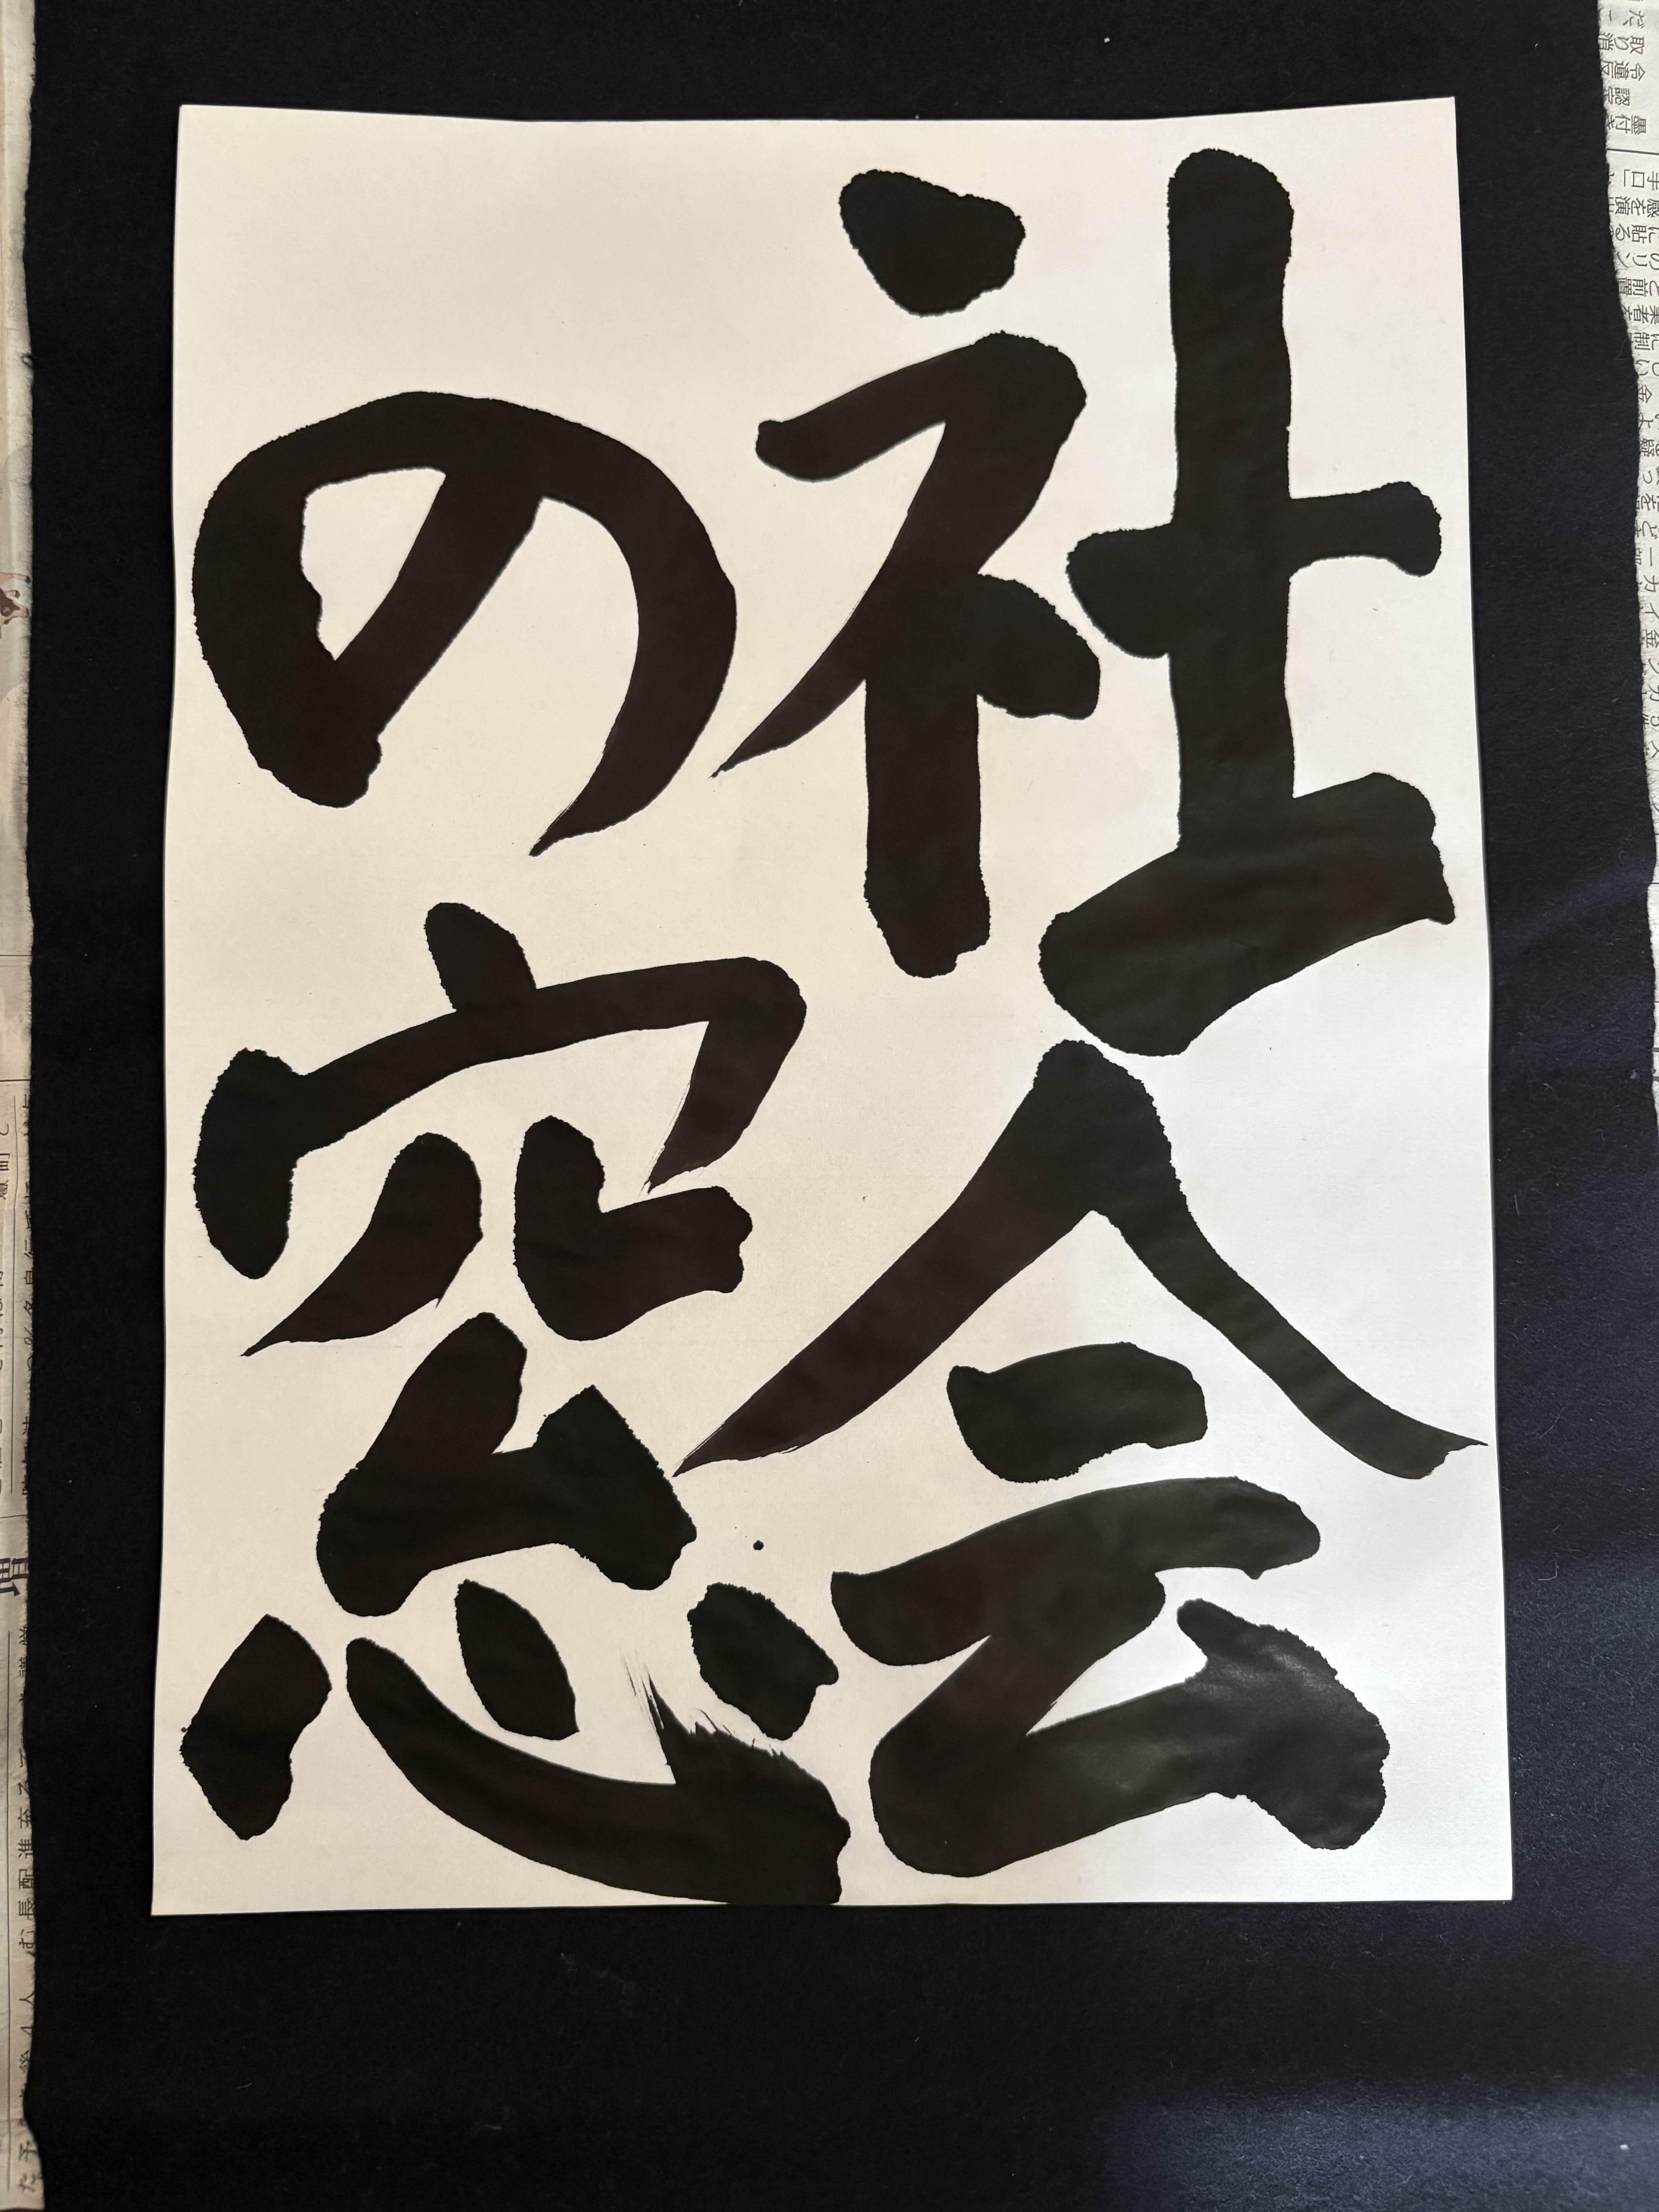 社会
の窓